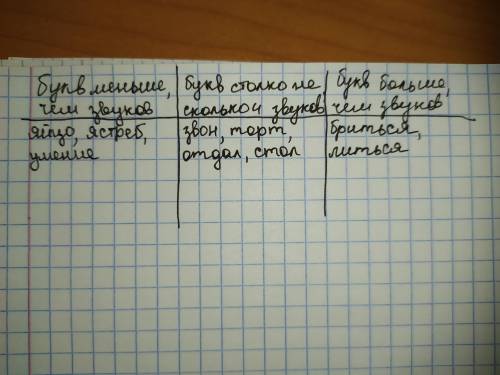 букв меньше,
чем звуков
яйцо, ястреб,
умение
букв столко же
сколько и звуков
звон, торт,
отдал, стол
букв больше,
чем звуков
бриться,
литься